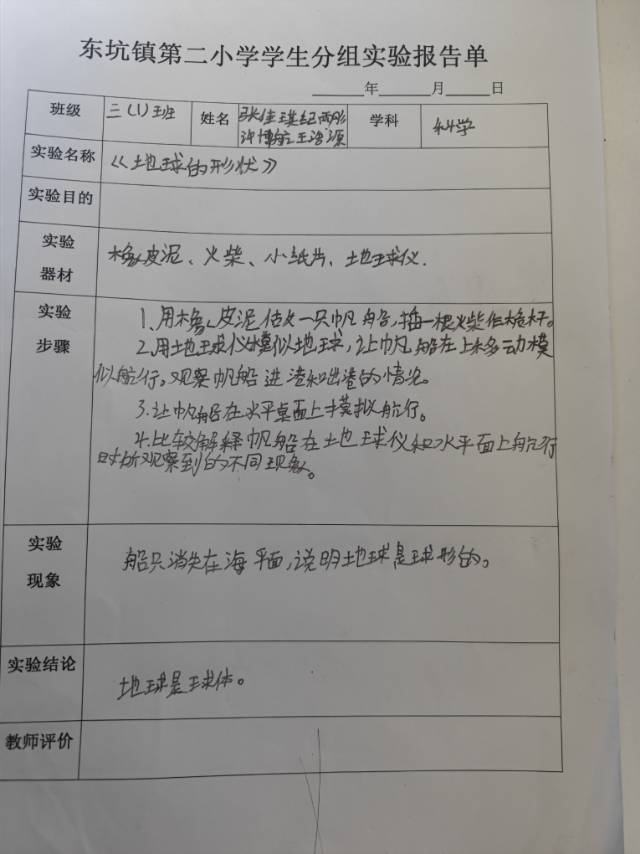 东坑镇第二小学学生分组实验报告单
年 月 日
班级 三(1)班 姓名 张佳琪纪雨彤 学科 科学
许博航王浩源
实验名称 《地球的形状》
实验目的
实验器材 橡皮泥、火柴、小纸片、地球仪.
实验步骤 1、用橡皮泥做一只帆船,插一根火柴作桅杆。
2.用地球仪模似地球,让帆船在上移动模
似航行。观察帆船进港和出港的情况。
3.让帆船在水平桌面上模拟航行。
4.比较解释帆船在地球仪和水平面上航行
时所观察到的不同现象。
实验现象 船只消失在海平面,说明地球是球形的。
实验结论 地球是球体。
教师评价